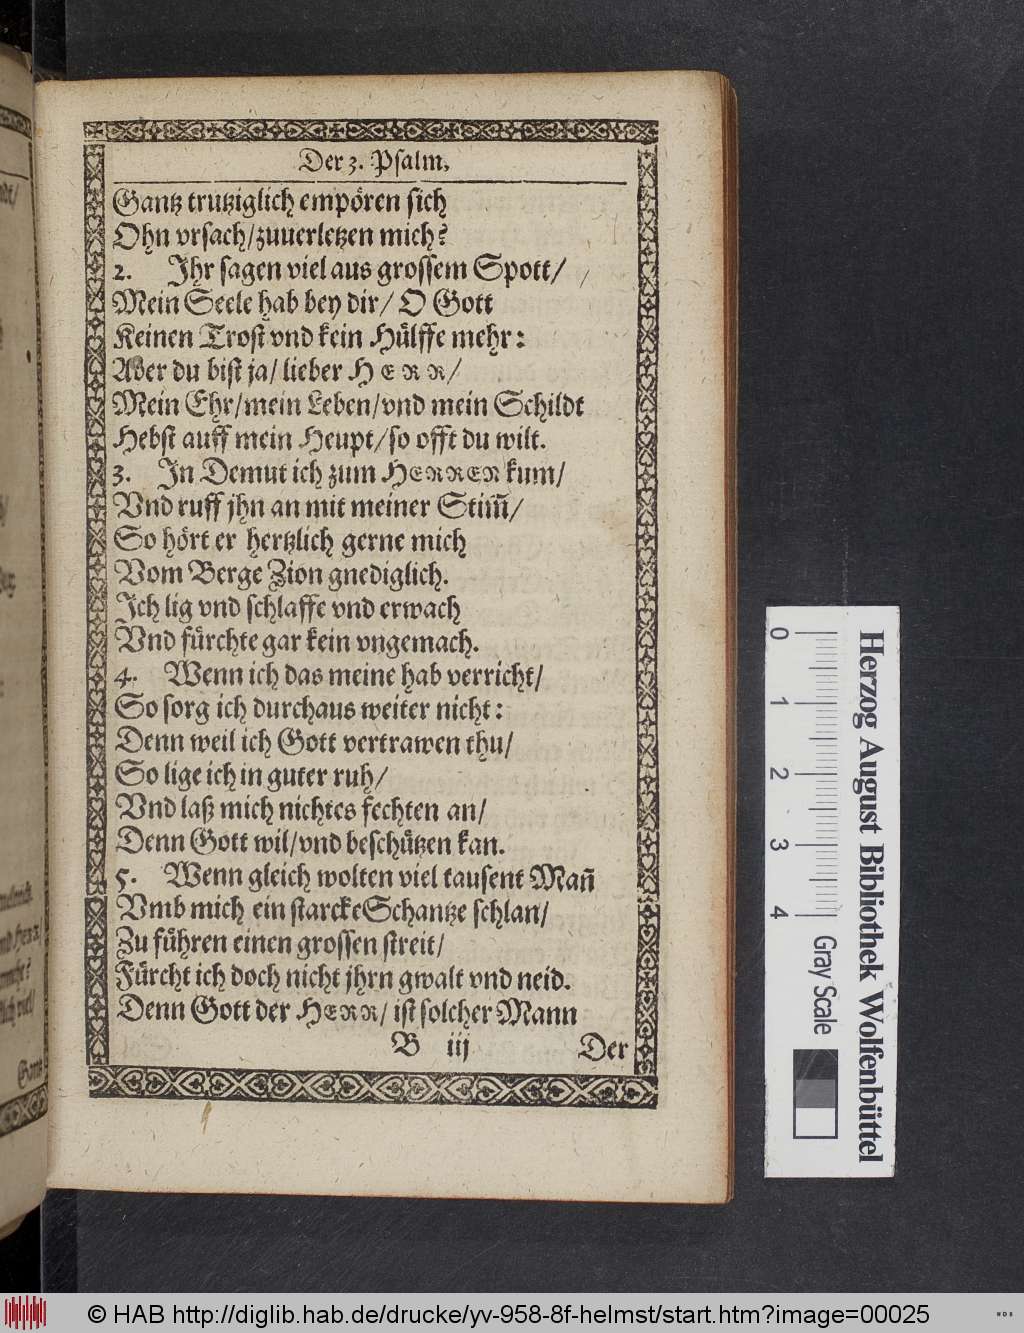 Der 3. Psalm.
Gantz trutziglich empören sich
Ohn vrsach/ zuuerletzen mich?
2. Jhr sagen viel aus grossem Spott/
Mein Seele hab bey dir/ O Gott
Keinen Trost vnd kein Hülffe mehr:
Aber du bist ja/ lieber HERR/
Mein Ehr/ mein Leben/ vnd mein Schildt
Hebst auff mein Heupt/ so offt du wilt.
3. Jn Demut ich zum HERREN kum/
Vnd ruff jhn an mit meiner Stim̃/
So hört er hertzlich gerne mich
Vom Berge Zion gnediglich.
Jch lig vnd schlaffe vnd erwach
Vnd fürchte gar kein vngemach.
4. Wenn ich das meine hab verricht/
So sorg ich durchaus weiter nicht:
Denn weil ich Gott vertrawen thu/
So lige ich in guter ruh/
Vnd laß mich nichtes fechten an/
Denn Gott wil/ vnd beschützen kan.
5. Wenn gleich wolten viel tausent Mañ
Vmb mich ein starcke Schantze schlan/
Zu führen einen grossen streit/
Fürcht ich doch nicht jhrn gwalt vnd neid.
Denn Gott der HERR/ ist solcher Mann
B iij Der
0 1 2 3 4 Gray Scale
Herzog August Bibliothek Wolfenbüttel
© HAB http://diglib.hab.de/drucke/yv-958-8f-helmst/start.htm?image=00025